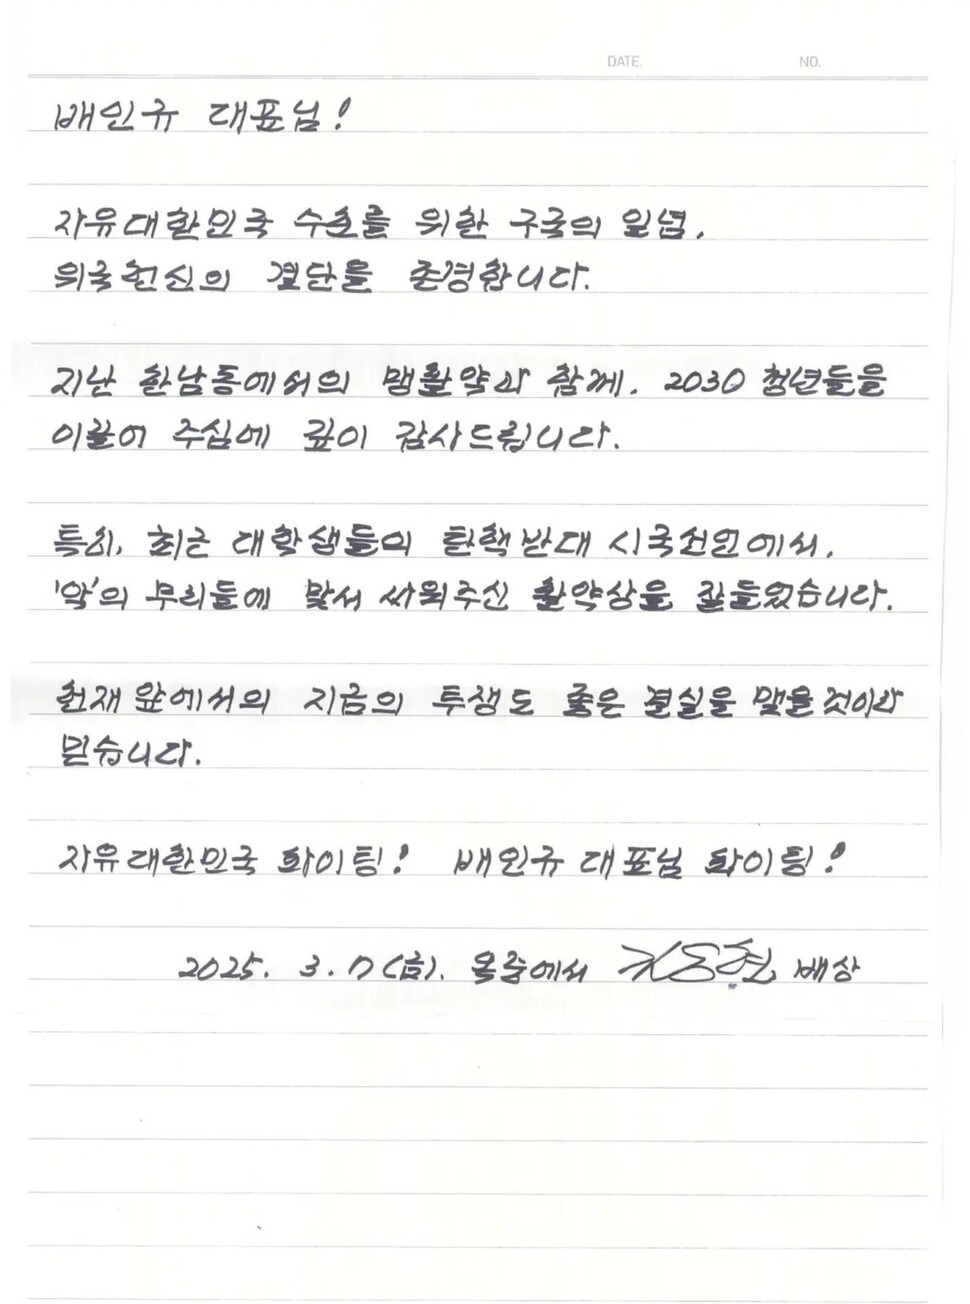 DATE. NO.
배인규 대표님!
자유대한민국 수호를 위한 구국의 일념,
위국헌신의 결단을 존경합니다.
지난 한남동에서의 맹활약과 함께, 2030 청년들을
이끌어 주심에 깊이 감사드립니다.
특히, 최근 대학생들의 탄핵반대 시국선언에서,
'악'의 무리들에 맞서 싸워주신 활약상을 잘들었습니다.
헌재 앞에서의 지금의 투쟁도 좋은 결실을 맺을 것이라
믿습니다.
자유대한민국 화이팅! 배인규 대표님 화이팅!
2025. 3. 7 (금). 옥중에서 배상